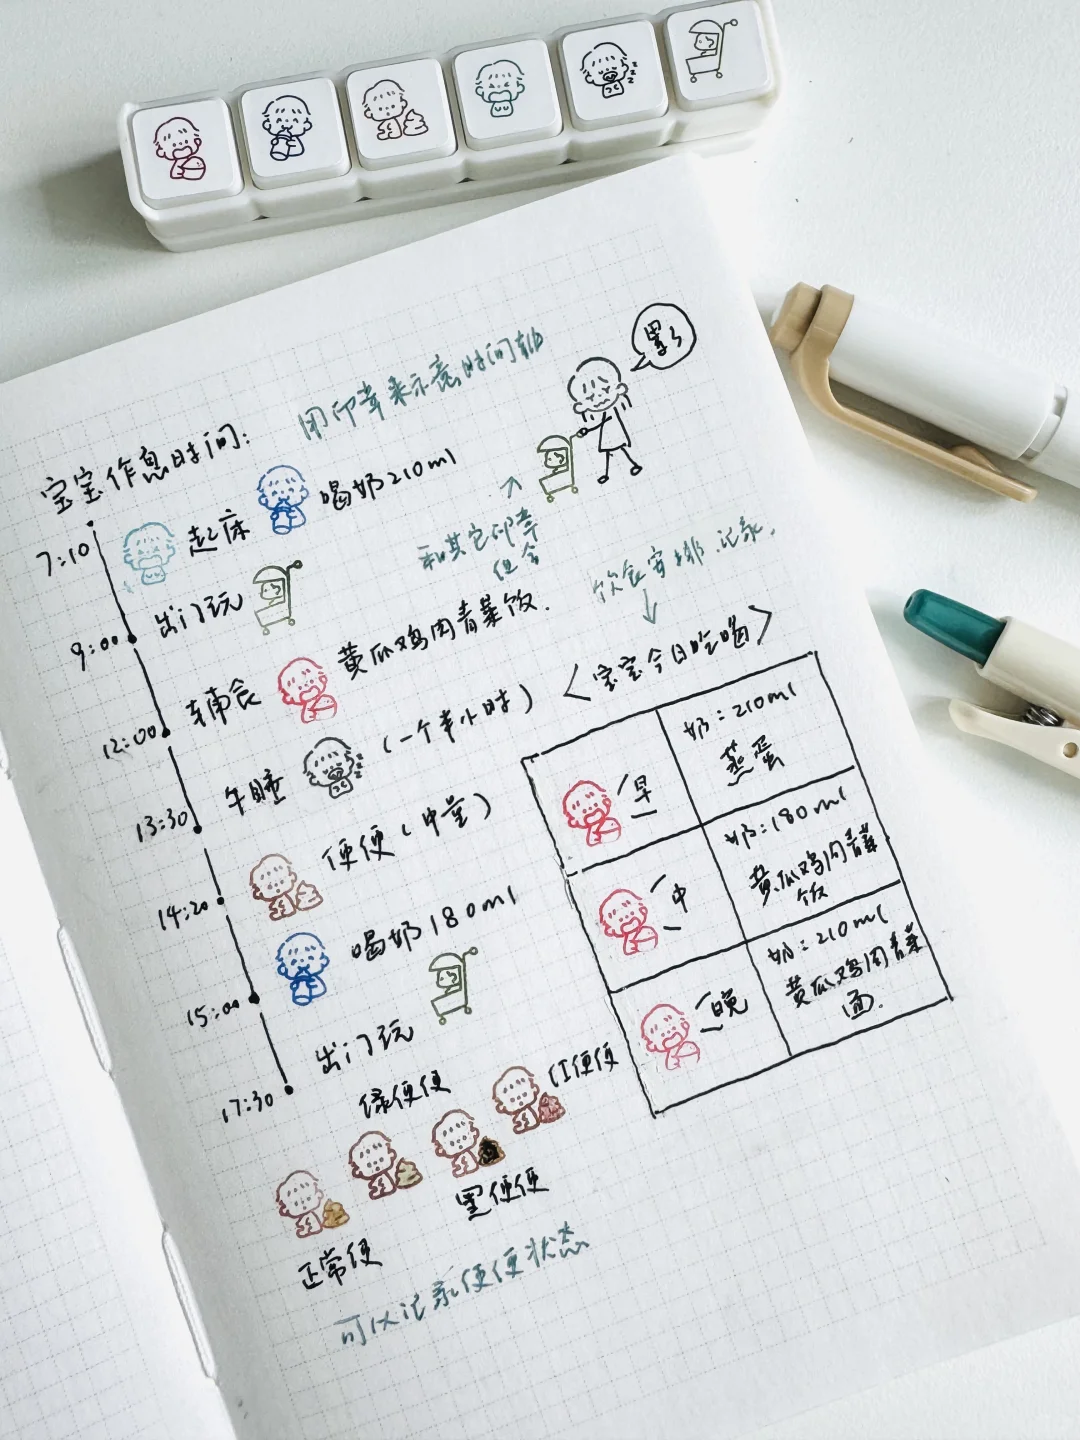 用印章来示意时间轴
累了
宝宝作息时间:
7:10
起床
喝奶210ml
和其它印章
组合
9:00
出门玩
饮食安排记录.
12:00
辅食
黄瓜鸡肉青菜饭.
<宝宝今日吃喝>
13:30
午睡
(一个半小时)
早
奶:210ml
蒸蛋
14:20
便便(中量)
中
奶:180ml
黄瓜鸡肉青菜
饭
15:00
喝奶180ml
晚
奶:210ml
黄瓜鸡肉青菜
面.
17:30
出门玩
绿便便
红便便
黑便便
正常便
可以记录便便状态